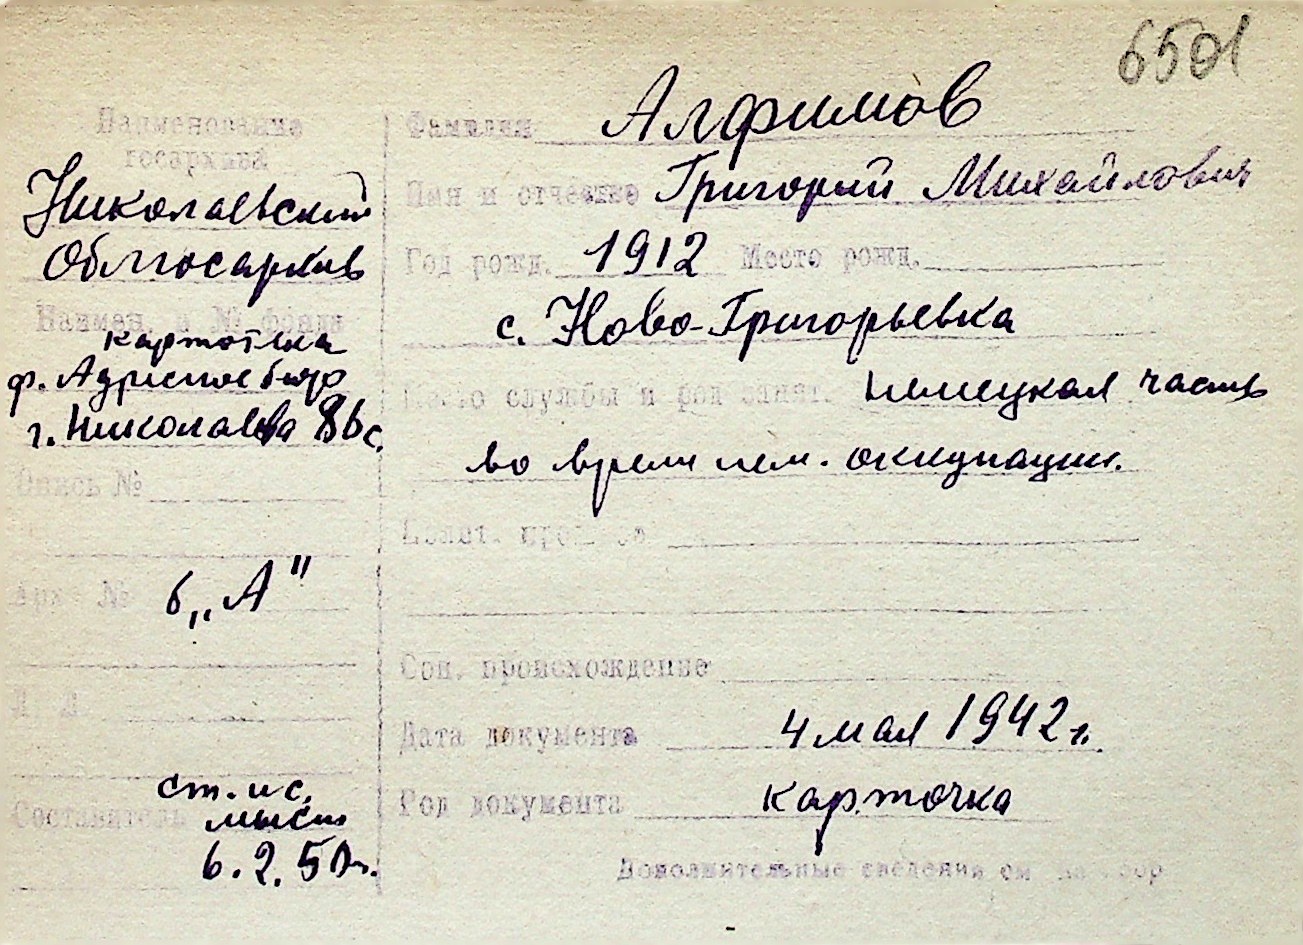 6501
Наименование
госархива
Николаевский
Облгосархив
Наимен. и № фонда
картотека
ф. Адресное бюро
г. Николаева
Опись №
Арх. № 6 „А"
Л. Д.
Составитель ст. н с.
6. 2. 50 г.
Фамилия Алфимов
Имя и отчество Григорий Михайлович
Год рожд. 1912 Место рожд.
с. Ново-Григорьевка
Место службы и род занят. немецкая часть
во время нем. оккупации.
Полит. прошлое
Соц. происхождение
Дата документа 4 мая 1942 г.
Род документа карточка
Дополнительные сведения см на обор